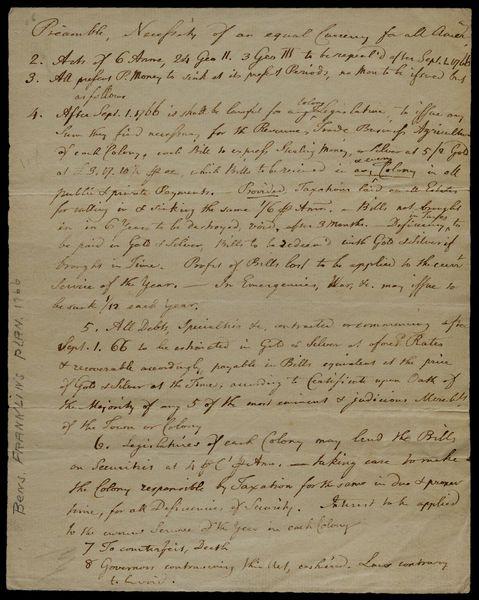 Preamble, Necessity of an equal Currency for all America
2. Acts of 6 Anne, 24 Geo II. 3 Geo III to be repeal'd after Sept. 1. 1766
3. All present P. Money to sink at its prefix'd Periods, no More to be issued but
as follows
4. After Sept. 1. 1766 it shall be lawful for any Colony Legislature to issue any
Sum they find necessary for the Revenue, Trade Business Agriculture
of each Colony, each Bill to express Sterling Money, or Silver at 5/2 Gold
at £3.17.10½ ℔ oz, which Bills to be received in every Colony in all
publick & private Payments. — Provided Taxations laid on all Estates
for calling in & sinking the same 1/6 ℔ Ann. — Bills not brought
in in 6 Years to be destroyed, void, after 3 Months. — Deficiency of Taxes to
be paid in Gold & Silver, Bills to be redeem'd with Gold & Silver if
brought in Time. Profit of Bills lost to be applied to the curr't
Service of the Year. — In Emergencies, War, &c. may issue to
be sunk 1/12 each Year.
5. All Debts, Specialties &c, contracted or commencing after
Sept. 1. 66 to be estimated in Gold & Silver at afores'd Rates
& recoverable accordingly, payable in Bills equivalent at the price
of Gold & Silver at the Time, according to Certificate upon Oath of
the Majority of any 5 of the most eminent & judicious Merchts
of the Town or Colony
6. Legislatures of each Colony may lend the Bills
on Securities at 4 ℔ Ct ℔ Ann. — taking care to make
the Colony responsible by Taxation for the same in due & proper
time, for all Deficiencies of Security. Interest to be applied
to the current Service of the Year in each Colony
7 To counterfeit, Death
8 Governors contravening this Act, cashier'd. Laws contrary
to be void.
Benj. FRANKLIN'S PLAN. 1766